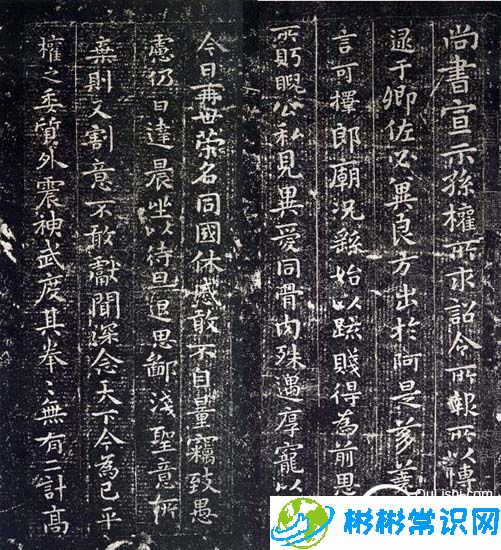 尚書宣示孫權所求詔令所報所以博
逮于卿佐必冀良方出於阿是芻蕘
言可擇郎廟況繇始以疏賤得為前恩
所眄睨公私見異愛同骨肉殊遇厚寵以
今日再世榮名同國休慼敢不自量竊致愚
慮仍日達晨坐以待旦退思鄙淺聖意所
棄則又割意不敢獻聞深念天下今為已平
權之委質外震神武度其拳〻無有二計高
QuLishi.com
彬彬常识网